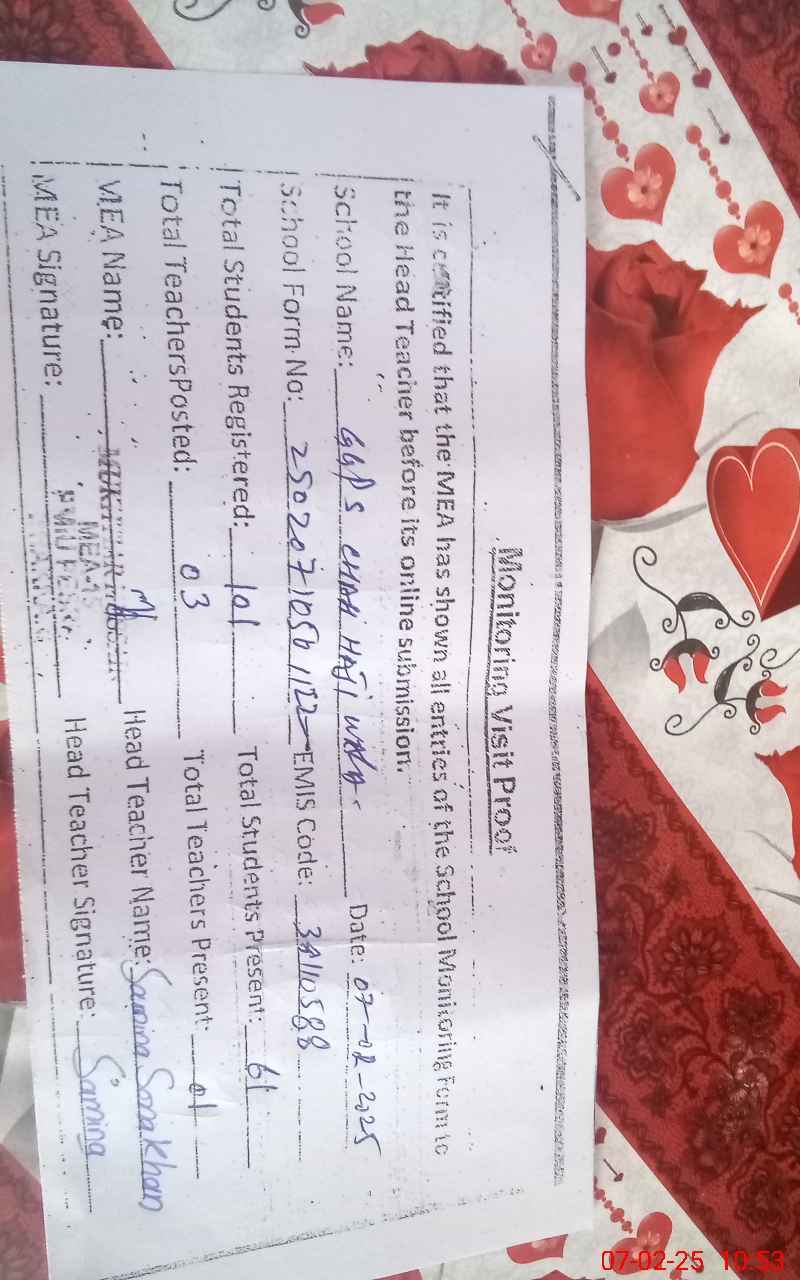 Monitoring Visit Proof
It is certified that the MEA has shown all entries of the School Monitoring Form to
the Head Teacher before its online submission.
School Name: GGPS CHAH HAJI WALA Date: 07-02-2025
School Form No: 25020710561122 EMIS Code:
Total Students Registered: 101 Total Students Present: 61
Total Teachers Posted: 03 Total Teachers Present: 01
MEA Name: Head Teacher Name: Samina Sona Khan
MEA-
MEA Signature: Head Teacher Signature: Samina
07-02-25 10:53